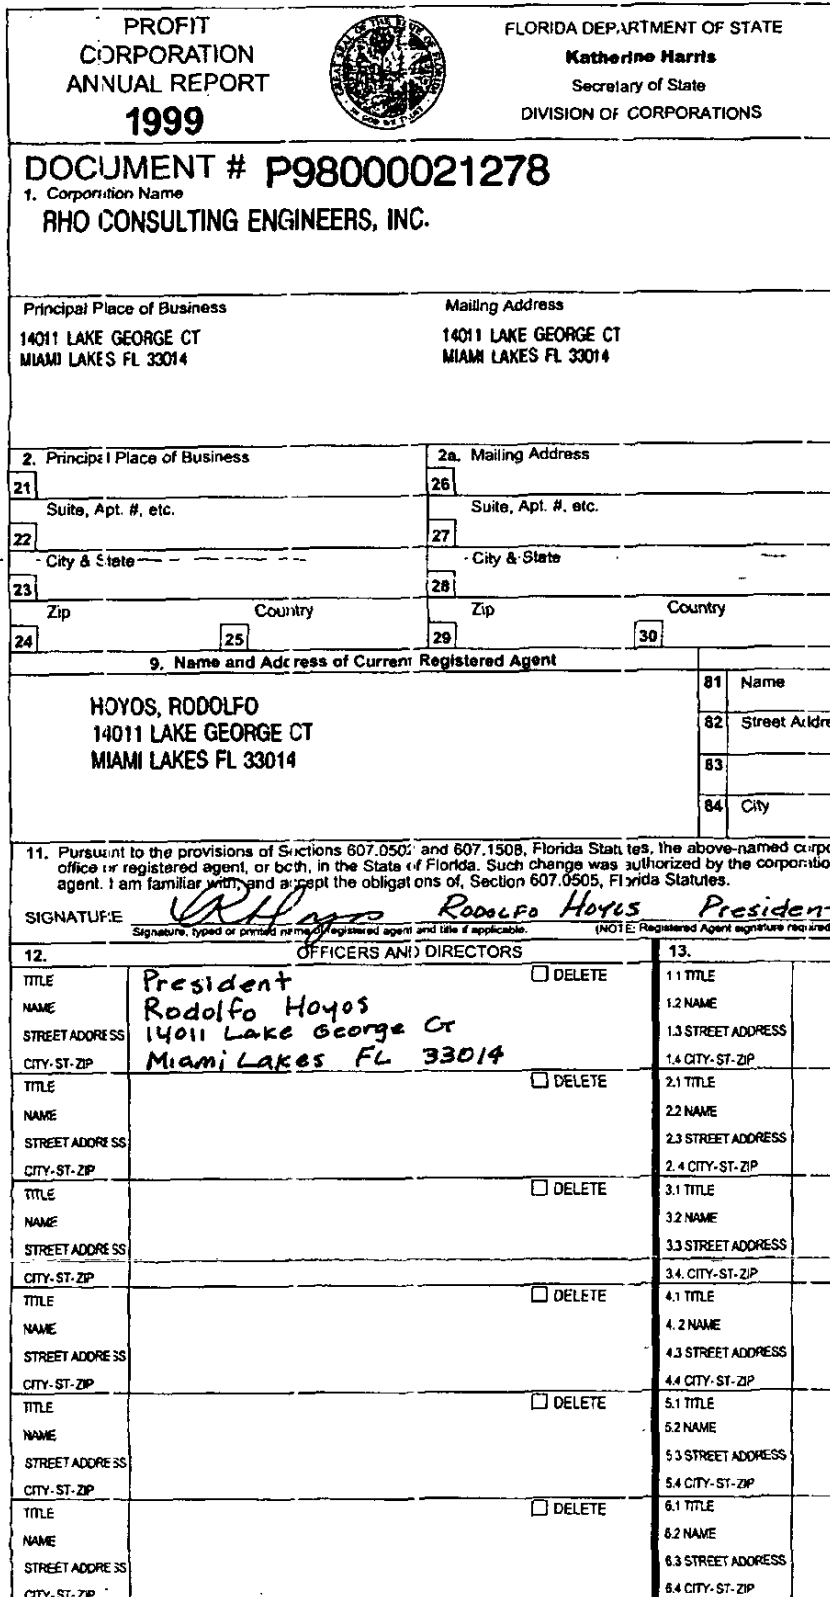 PROFIT
CORPORATION
ANNUAL REPORT
1999
FLORIDA DEPARTMENT OF STATE
Katherine Harris
Secretary of State
DIVISION OF CORPORATIONS
DOCUMENT # P98000021278
1. Corporation Name
RHO CONSULTING ENGINEERS, INC.
Principal Place of Business
14011 LAKE GEORGE CT
MIAMI LAKES FL 33014
Mailing Address
14011 LAKE GEORGE CT
MIAMI LAKES FL 33014
2. Principal Place of Business
21
Suite, Apt. #, etc.
22
City & State
23
Zip
Country
24
25
2a. Mailing Address
26
Suite, Apt. #, etc.
27
City & State
28
Zip
Country
29
30
9. Name and Address of Current Registered Agent
HOYOS, RODOLFO
14011 LAKE GEORGE CT
MIAMI LAKES FL 33014
81 Name
82 Street Addre
83
84 City
11. Pursuant to the provisions of Sections 607.0502 and 607.1508, Florida Statutes, the above-named corpo
office or registered agent, or both, in the State of Florida. Such change was authorized by the corporatio
agent. I am familiar with, and accept the obligations of, Section 607.0505, Florida Statutes.
SIGNATURE RODOLFO HOYOS Presiden
Signature, typed or printed name of registered agent and title if applicable. (NOTE: Registered Agent signature required
12. OFFICERS AND DIRECTORS
13.
TITLE President DELETE
NAME Rodolfo Hoyos
STREET ADDRESS 14011 Lake George CT
CITY-ST-ZIP Miami Lakes FL 33014
1.1 TITLE
1.2 NAME
1.3 STREET ADDRESS
1.4 CITY-ST-ZIP
TITLE DELETE
NAME
STREET ADDRESS
CITY-ST-ZIP
2.1 TITLE
2.2 NAME
2.3 STREET ADDRESS
2.4 CITY-ST-ZIP
TITLE DELETE
NAME
STREET ADDRESS
CITY-ST-ZIP
3.1 TITLE
3.2 NAME
3.3 STREET ADDRESS
3.4. CITY-ST-ZIP
TITLE DELETE
NAME
STREET ADDRESS
CITY-ST-ZIP
4.1 TITLE
4.2 NAME
4.3 STREET ADDRESS
4.4 CITY-ST-ZIP
TITLE DELETE
NAME
STREET ADDRESS
CITY-ST-ZIP
5.1 TITLE
5.2 NAME
5.3 STREET ADDRESS
5.4 CITY-ST-ZIP
TITLE DELETE
NAME
STREET ADDRESS
CITY-ST-ZIP
6.1 TITLE
6.2 NAME
6.3 STREET ADDRESS
6.4 CITY-ST-ZIP